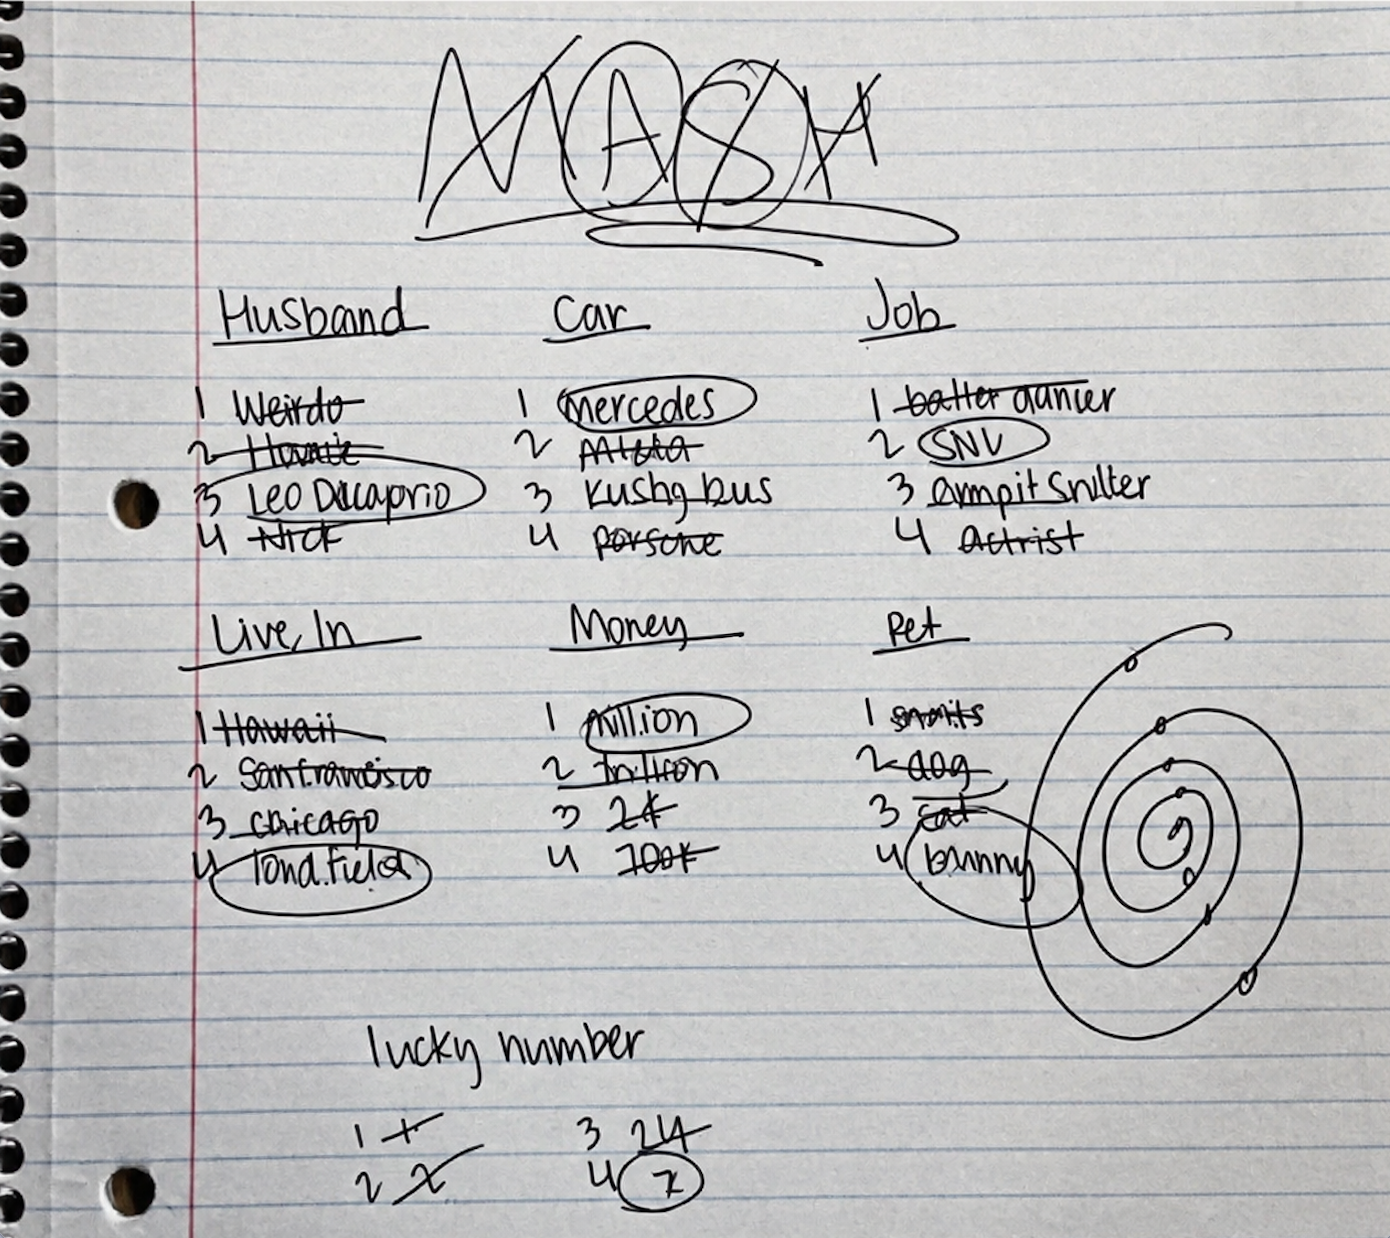 MASH
Husband Car Job
1 Weirdo 1 Mercedes 1
2 Homie 2 2 SNV
3 Leo Dicaprio 3 Kushg bus 3 armpit
4 Nick 4 porsche 4 Actrist
Live In Money Pet
1 Hawaii 1 Million 1
2 San francisco 2 trillion 2 dog
3 chicago 3 3 cat
4 4 100K 4 bunny
lucky number
1 1 3 24
2 2 4 7